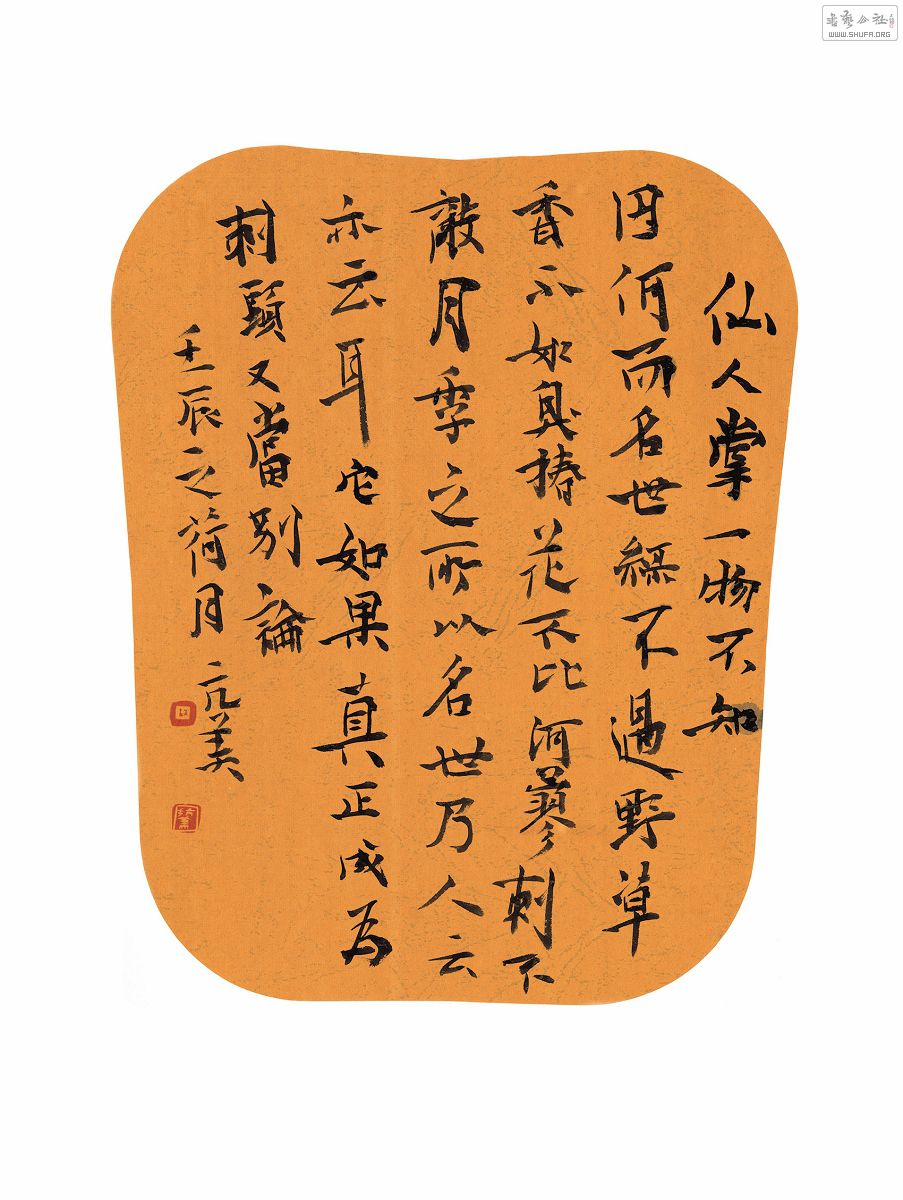 仙人掌一物不知
因何而名世綠不過野草
香不如臭椿花不比河蓼刺不
敵月季之所以名世乃人云
亦云耳它如果真正成为
刺頭又當别論
壬辰之荷月亢美
WWW.SHUFA.ORG